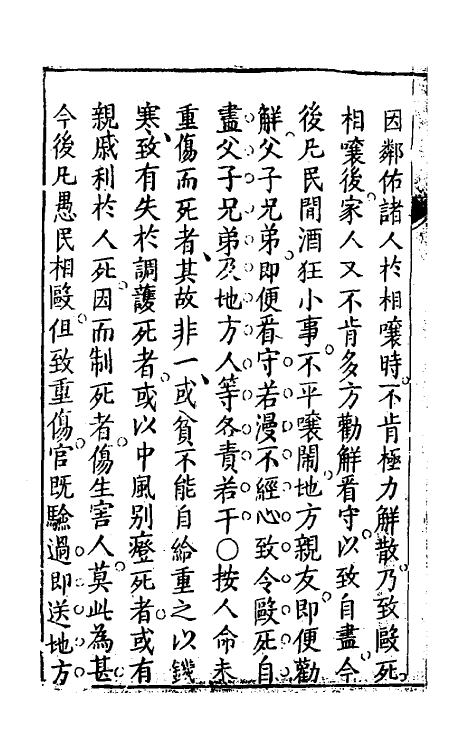 因鄰佑諸人於相嚷時不肯極力解散乃致毆死
相嚷後家人又不肯多方勸解看守以致自盡今
後凡民間酒狂小事不平嚷鬧地方親友即便勸
解父子兄弟即便看守若漫不經心致令毆死自
盡父子兄弟及地方人等各責若干○按人命未
重傷而死者其故非一或貧不能自給重之以饑
寒致有失於調護死者或以中風別瘂死者或有
親戚利於人死因而制死者傷生害人莫此為甚
今後凡愚民相毆但致重傷官既驗過即送地方